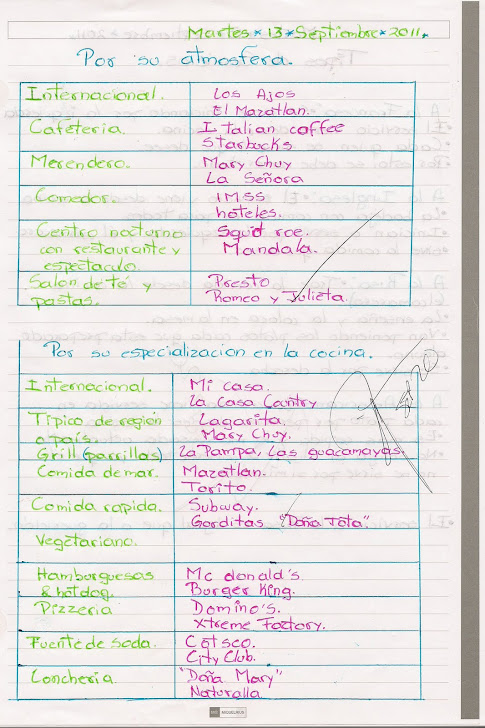 Martes * 13 * Septiembre * 2011.
Por su atmosfera.
Internacional. Los Ajos
El Mazatlan.
Cafeteria. Italian coffee
Starbucks
Merendero. Mary Chuy
La Señora
Comedor. IMSS
hoteles.
Centro nocturno Squid roe.
con restaurante y Mandala.
espectaculo
Salon de té y Presto
pastas. Romeo y Julieta.
Por su especializacion en la cocina.
Internacional. Mi casa.
La Casa Country
Tipico de region Lagarita.
o país. Mary Chuy.
Grill (parrillas) La Pampa, Las guacamayas.
Comida de mar. Mazatlan.
Torito.
Comida rapida. Subway.
Gorditas "Doña Tota"
Vegetariano.
Hamburguesas Mc donald's
& hotdog. Burger King.
Pizzeria Domino's.
Xtreme Factory.
Fuente de soda. Cotsco.
City Club.
Loncheria "Doña Mary"
Naturalla